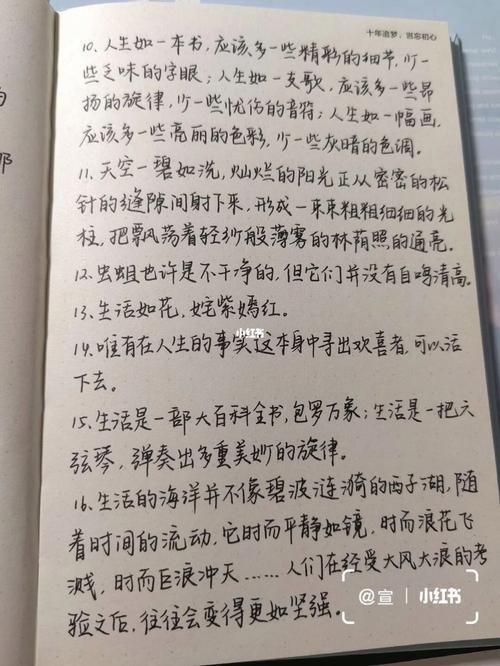 十年追梦,岂忘初心
10. 人生如一本书,应该多一些精彩的细节,少一
些乏味的字眼;人生如一支歌,应该多一些昂
扬的旋律,少一些忧伤的音符;人生如一幅画,
应该多一些亮丽的色彩,少一些灰暗的色调。
11. 天空一碧如洗,灿烂的阳光正从密密的松
针的缝隙间射下来,形成一束束粗粗细细的光
柱,把飘荡着轻纱般薄雾的林荫照的通亮。
12. 虫蛆也许是不干净的,但它们并没有自鸣清高。
13. 生活如花,姹紫嫣红。
小红书
14. 唯有在人生的事实这本身中寻出欢喜者,可以活
下去。
15. 生活是一部大百科全书,包罗万象;生活是一把六
弦琴,弹奏出多重美妙的旋律。
16. 生活的海洋并不像碧波涟漪的西子湖,随
着时间的流动,它时而平静如镜,时而浪花飞
溅,时而巨浪冲天……人们在经受大风大浪的考
验之后,往往会变得更加坚强。
@宣 小红书
那